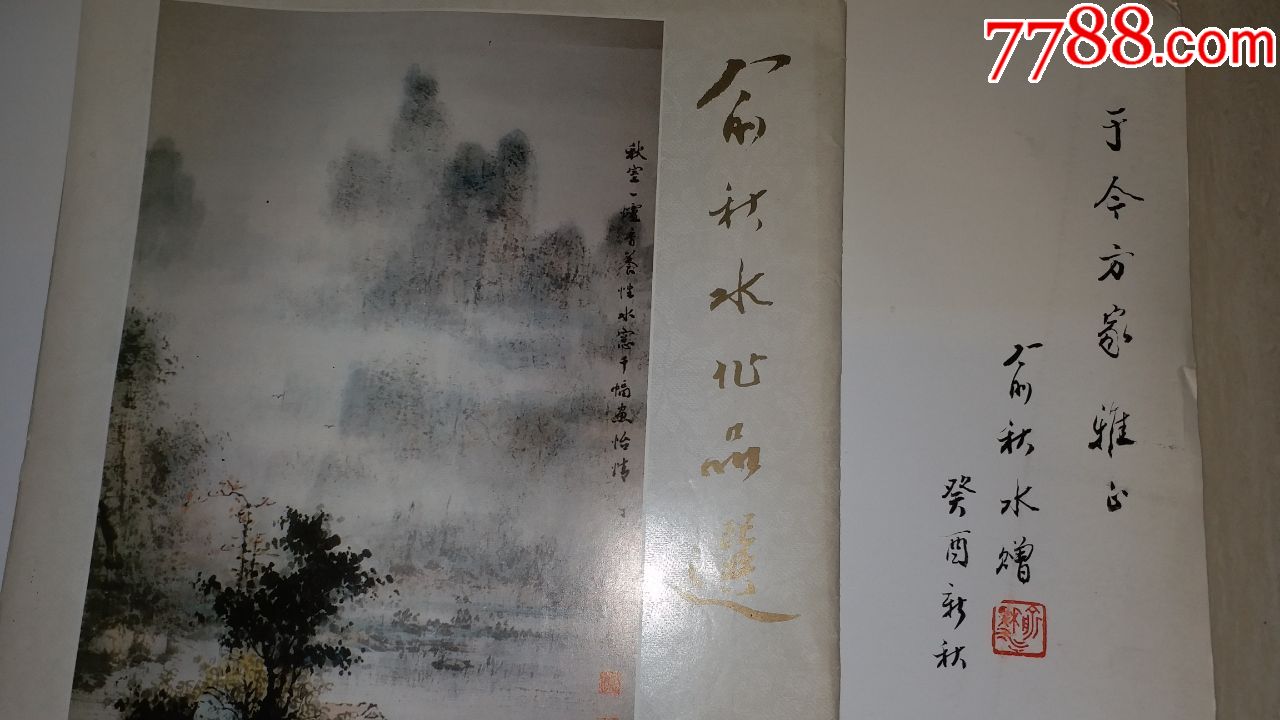 7788.com
于今方家雅正
俞秋水赠
癸酉新秋
俞秋水作品選
秋窗一爐香養性水窓千幅畫怡情